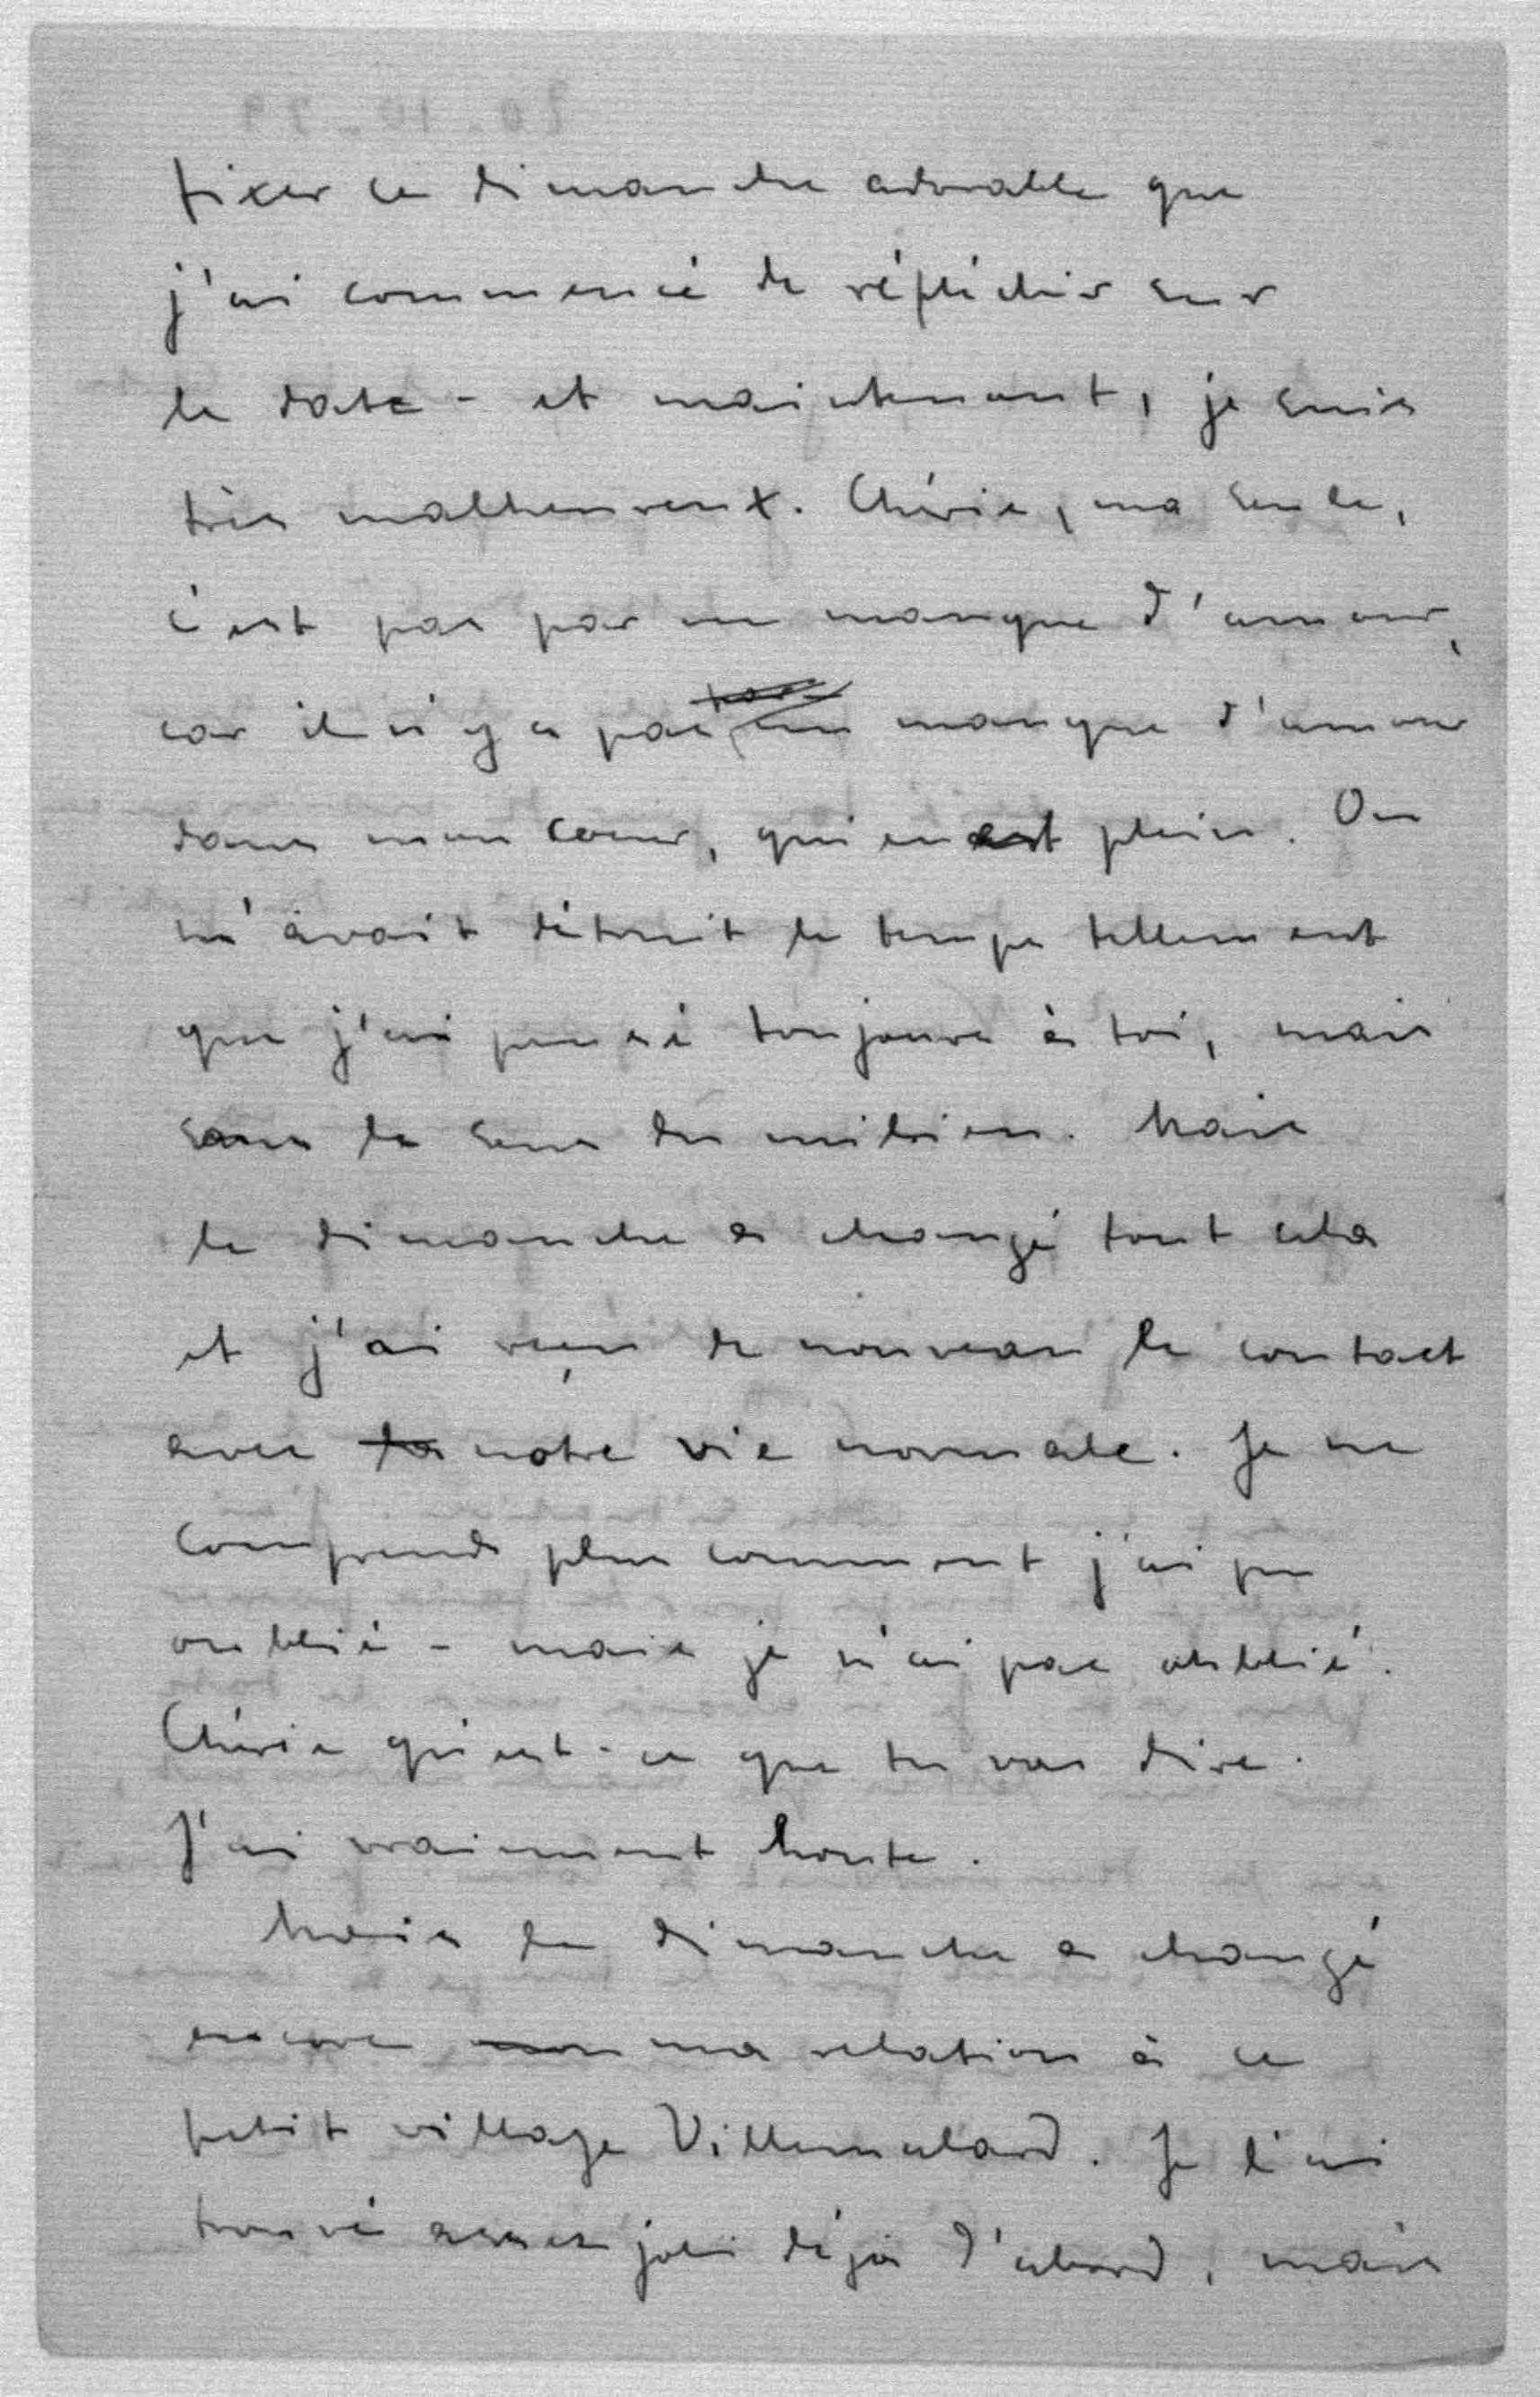 fixer ce dimanche adorable que
j'ai commencé de réfléchir sur
le date - et maintenant, je suis
très malheureux. Chérie, ma seule,
c'est pas par un manque d'amour,
car il n'y a pas un manque d'amour
dans mon cœur, qui en est plein. On
m'avait détruit le temps tellement
que j'ai pensé toujours à toi, mais
sans le sens du
le dimanche a changé tout cela
et j'ai reçu de nouveau le contact
avec notre vie normale. Je ne
comprends plus comment j'ai pu
oublié - mais je n'ai pas oublié.
Chérie qu'est-ce que tu vas dire.
J'ai vraiment honte.
Mais le dimanche a changé
encore ma relation à ce
petit village Villemalard. Je l'ai
trouvé assez joli déjà d'abord, mais